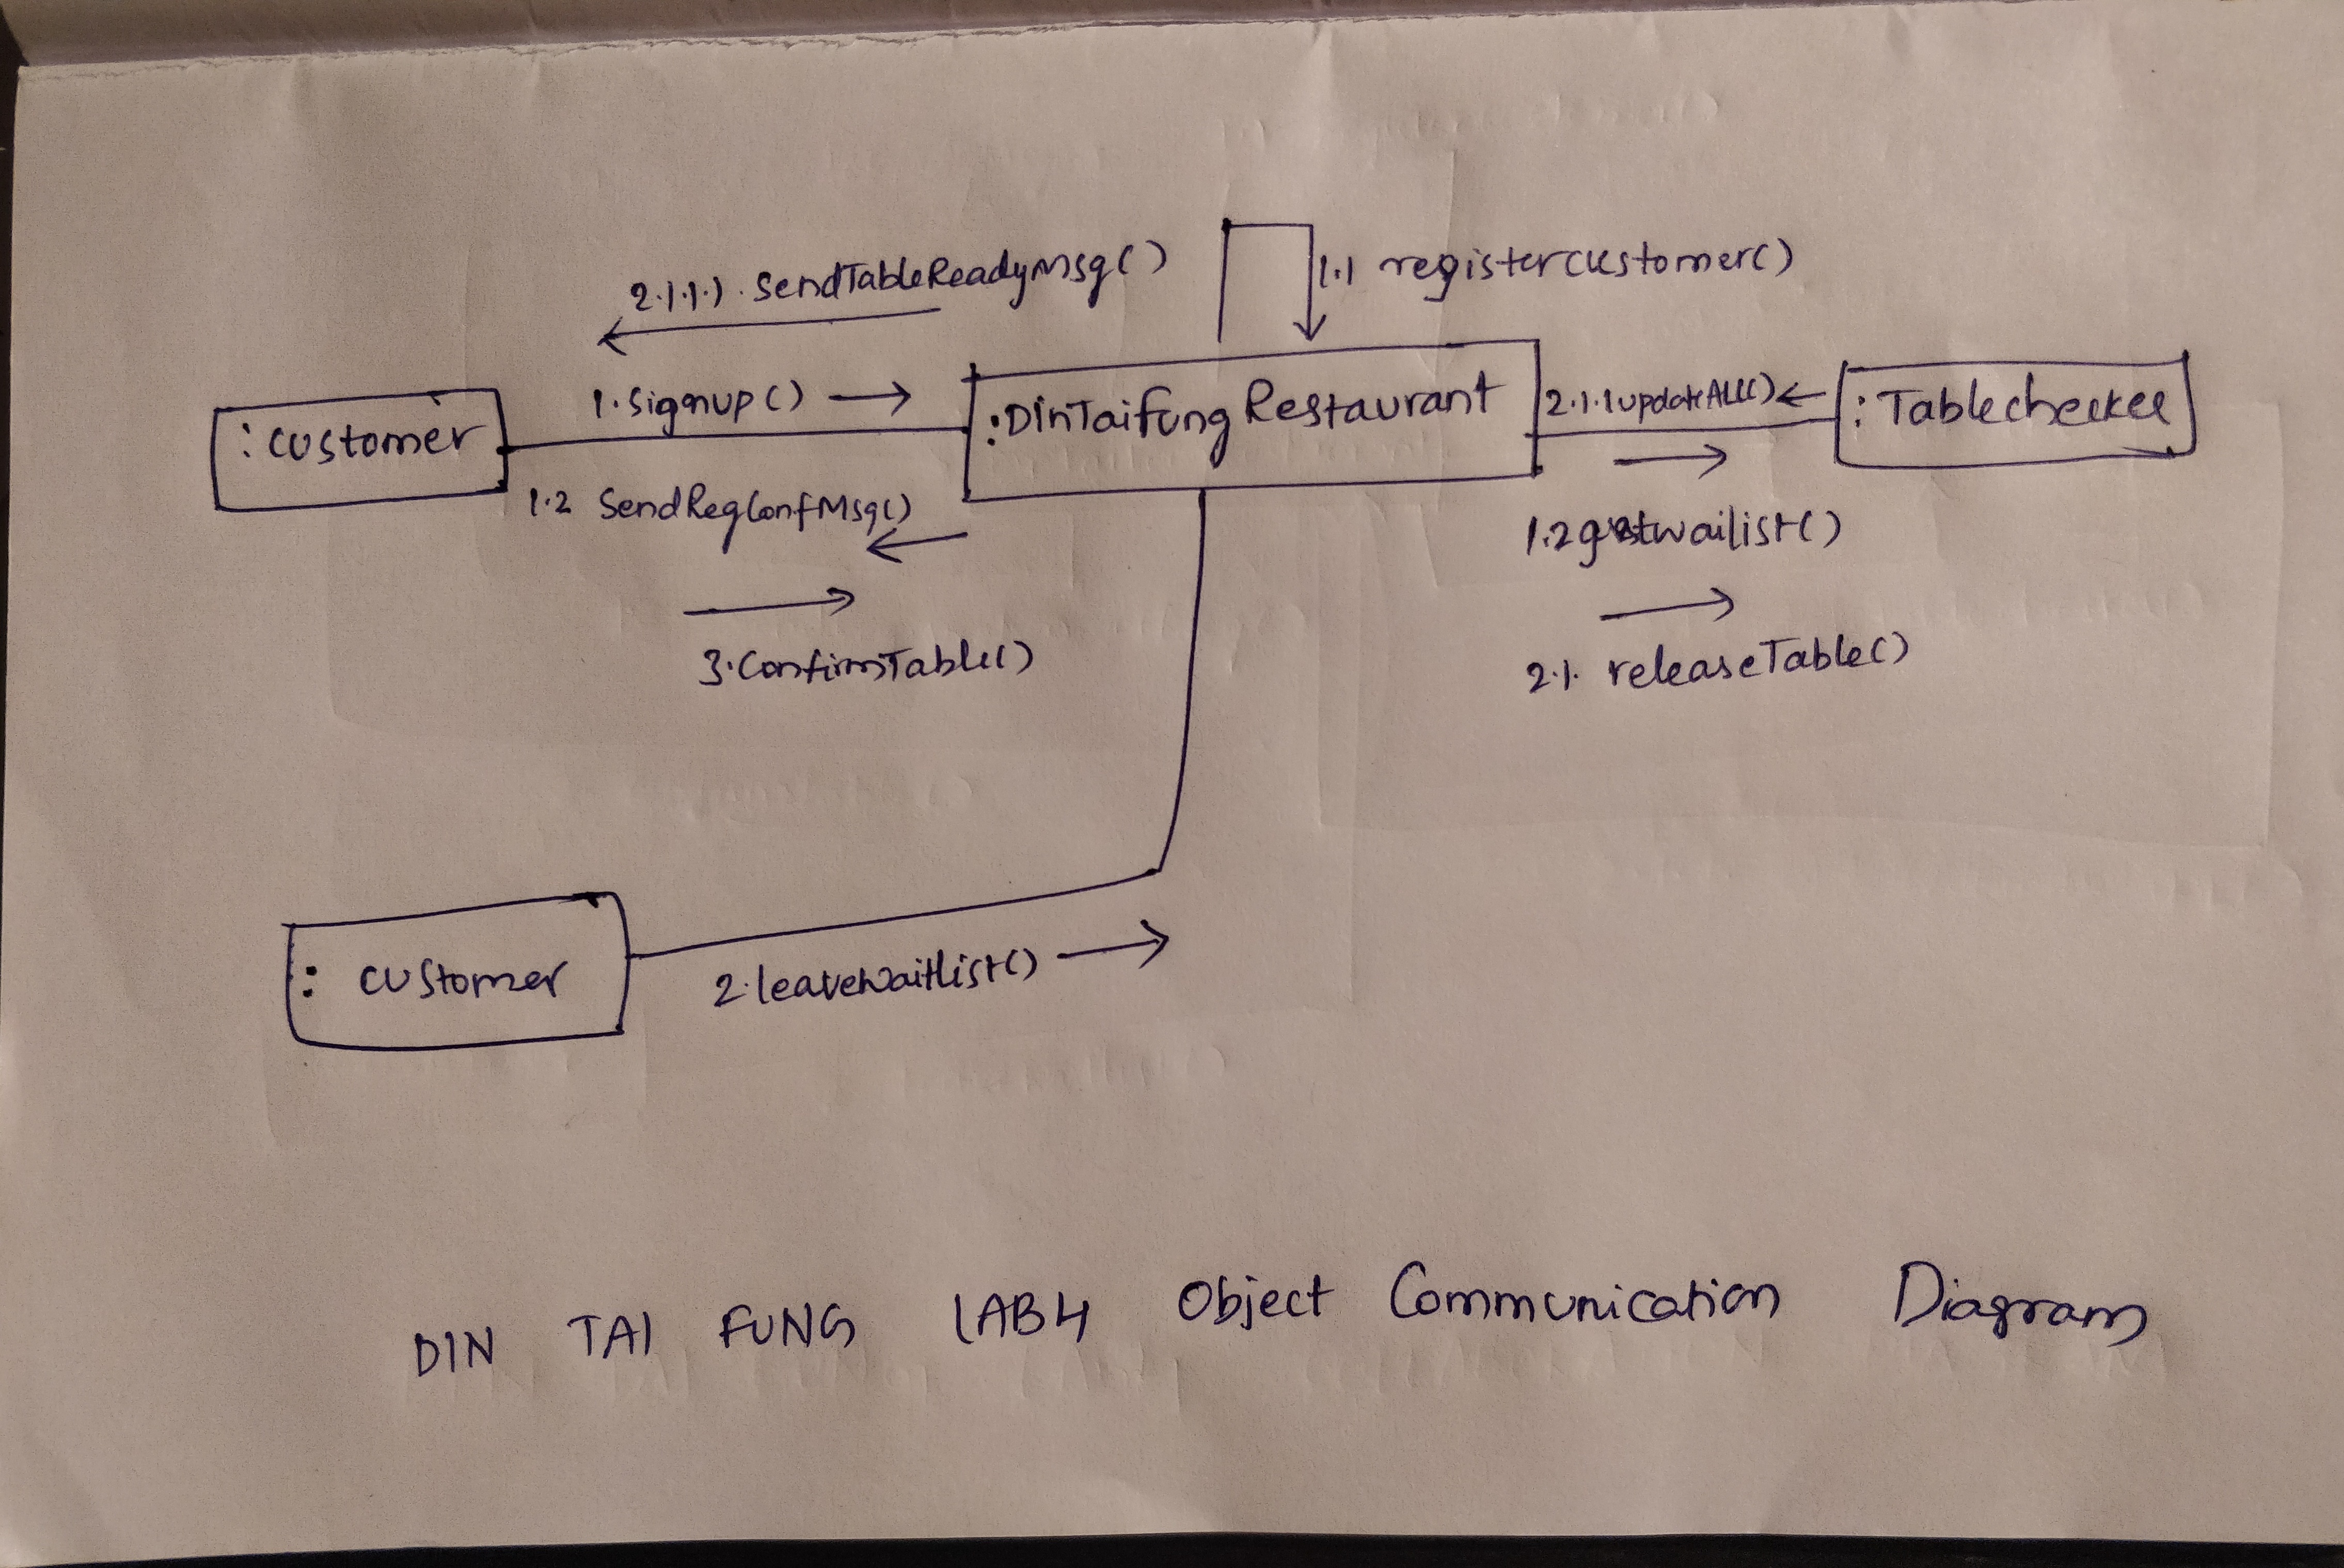 2.1.1.1. SendTableReadyMsg()
1.1 registercustomer()
1.Signup()
:customer
:DinTaifung Restaurant
2.1.1updateAll()
1.2 SendRegConfMsg()
3.ConfirmTable()
2.1. releaseTable()
: customer
2.leavewaitlist()
DIN TAI FUNG LAB4 Object Communication Diagram